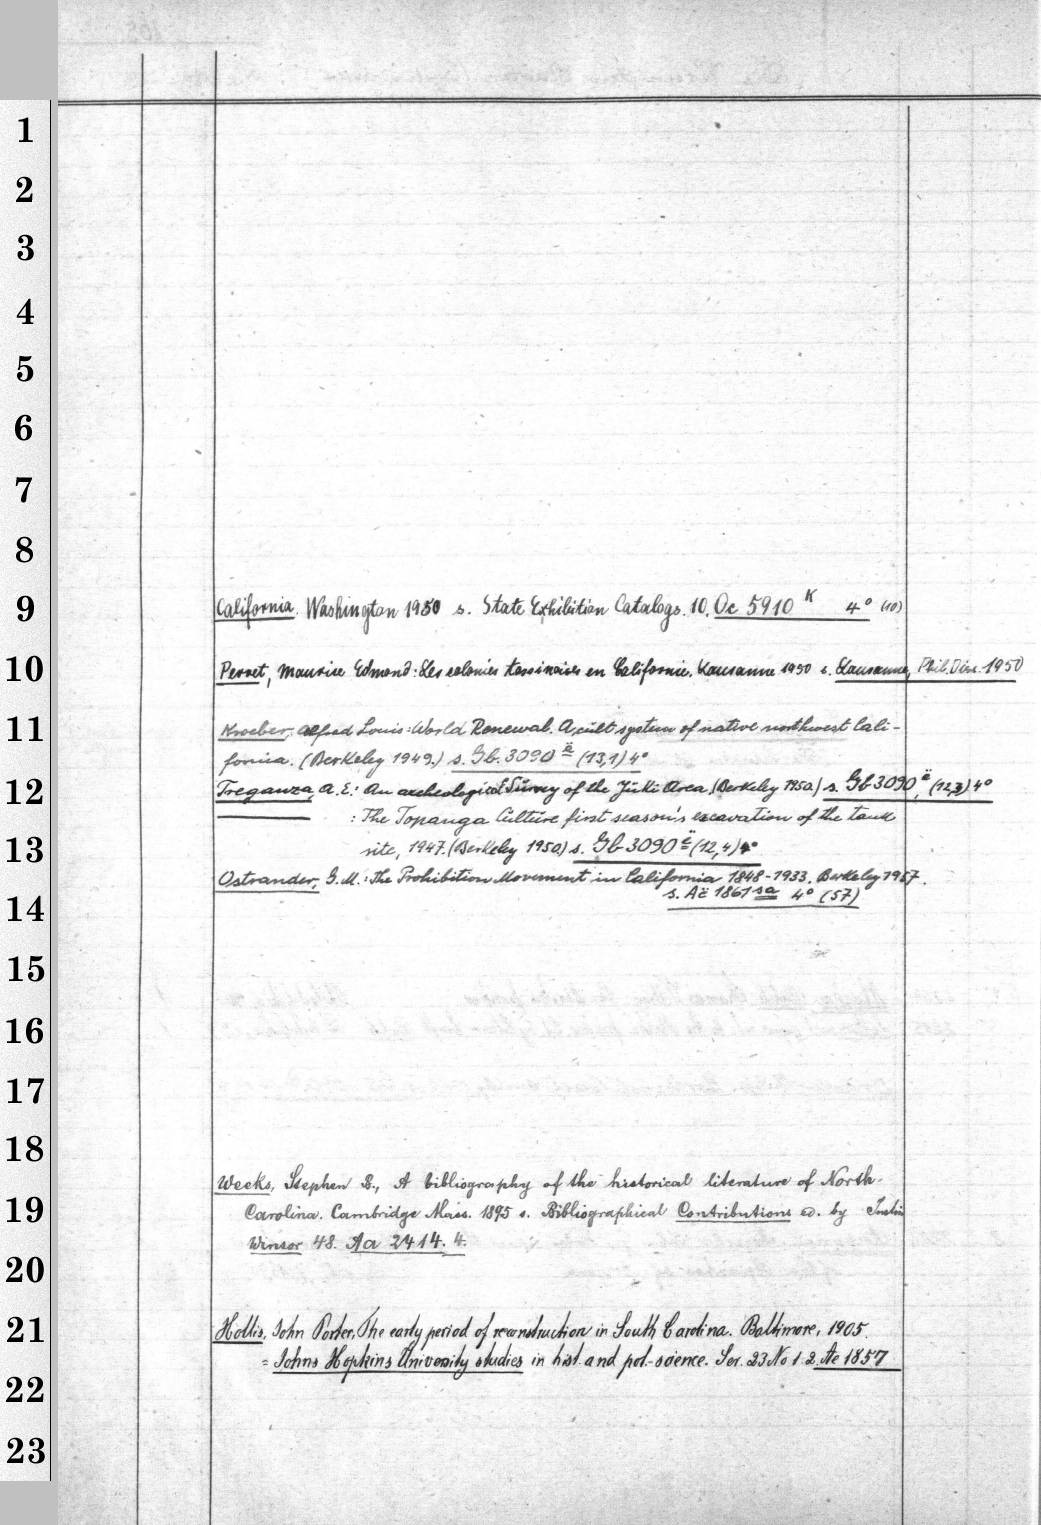 1
2
3
4
5
6
7
8
9
California. Washington 1950 s. State Exhibition Catalogs. 10. Oc 5910 K 4° (10)
10
Perret, Maurice Edmond: Les colonies tessinoises en Californie. Lausanne 1950 s. Lausanne, Phil. Diss. 1950
11
Kroeber, Alfred Louis: World Renewal. A cult system of native northwest Cali-
fornia. (Berkeley 1949.) s. Gb. 3090 ä (13,1) 4°
12
Treganza, A. E.: An archeological Survey of the Yuki Area (Berkeley 1950.) s. Gb 3090 ä (12,3) 4°
: The Topanga Culture first season's excavation of the tank
13
site, 1947. (Berkeley 1950) s. Gb 3090 ä (12,4) 4°
Ostrander, G. M.: The Prohibition Movement in California 1848-1933. Berkeley 1957.
s. Aë 1861 sa 4° (57)
14
15
16
17
18
Weeks, Stephen B., A bibliography of the historical literature of North-
19
Carolina. Cambridge Mass. 1895 s. Bibliographical Contributions ed. by Justin
Winsor 48. Aa 2414. 4.
20
21
Hollis, John Porter, The early period of reconstruction in South Carolina. Baltimore, 1905.
= Johns Hopkins University studies in hist. and pol. science. Ser. 23 No 1.2. Ae 1857
22
23